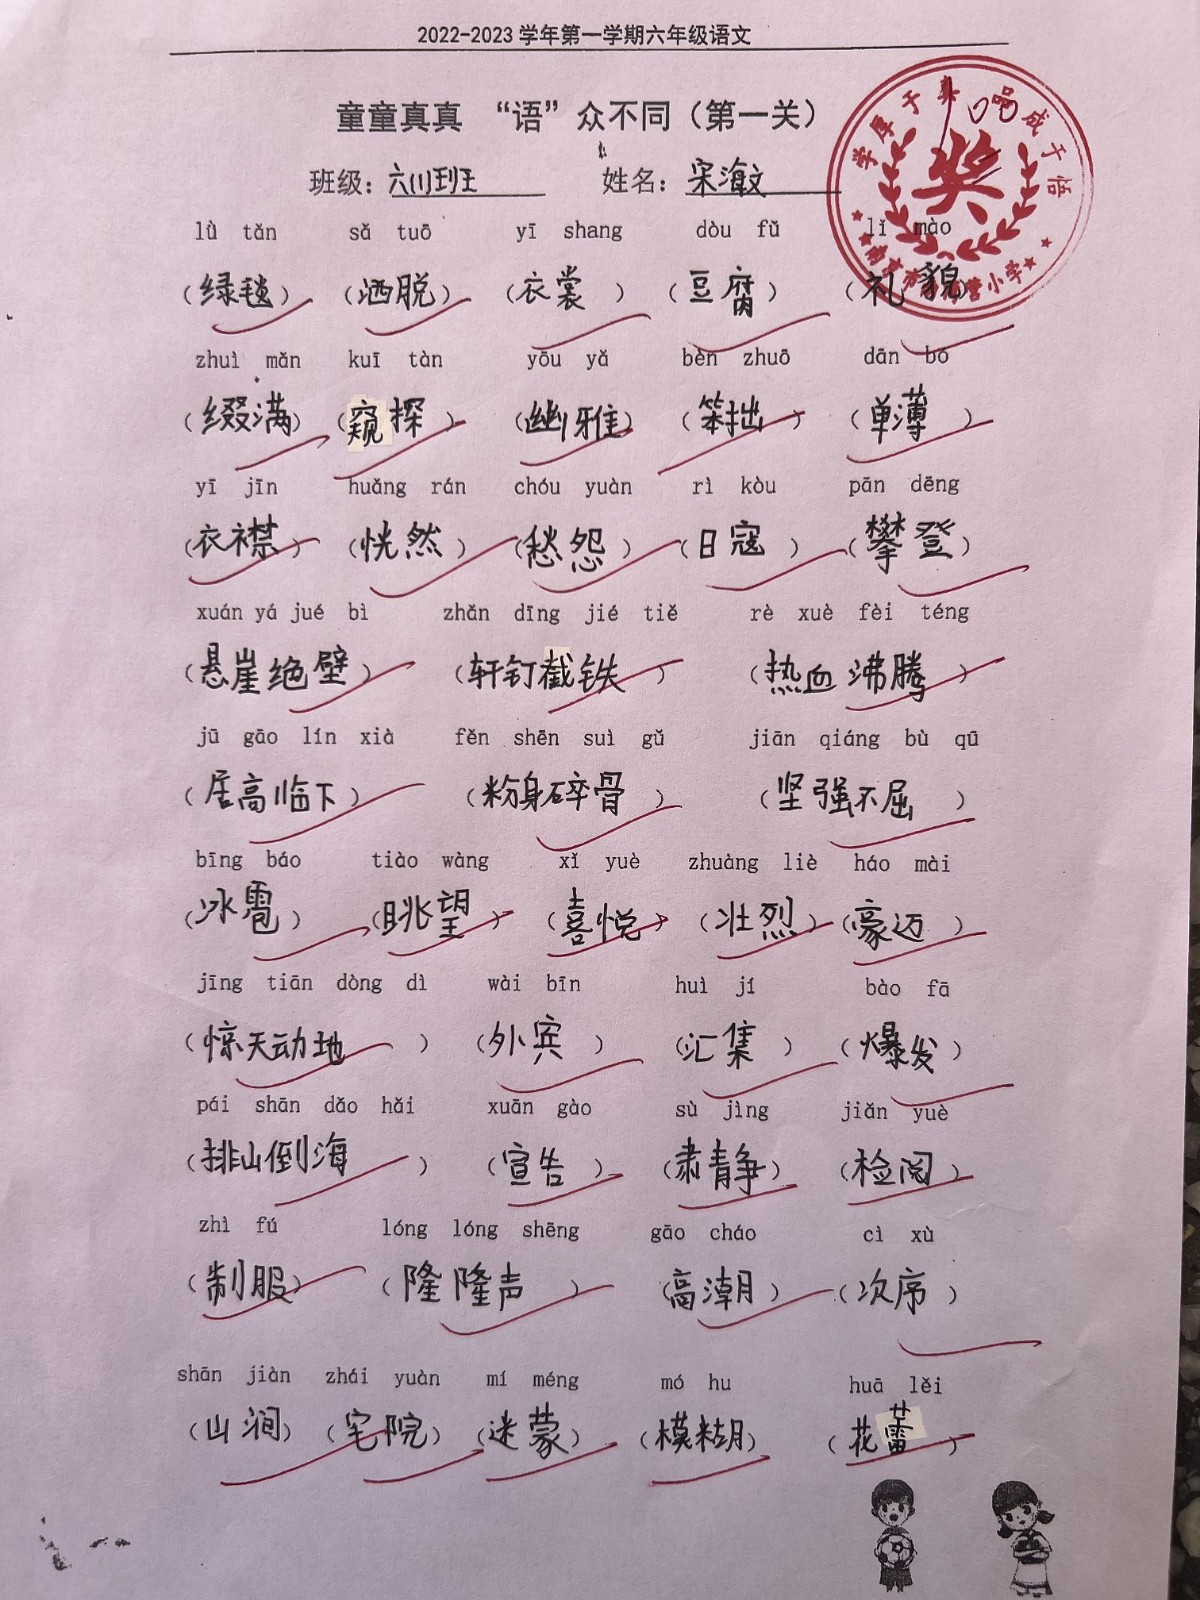 2022-2023 学年第一学期六年级语文
童童真真 “语”众不同（第一关）
班级：六(1)班 姓名：宋海文
学厚于真 品成于悟
奖
100
lǜ tǎn sǎ tuō yī shang dòu fǔ lǐ mào
（绿毯）（洒脱）（衣裳）（豆腐）（礼貌）
zhuì mǎn kuī tàn yōu yǎ bèn zhuō dān bó
（缀满）（窥探）（幽雅）（笨拙）（单薄）
yī jīn huǎng rán chóu yuàn rì kòu pān dēng
（衣襟）（恍然）（愁怨）（日寇）（攀登）
xuán yá jué bì zhǎn dīng jié tiě rè xuè fèi téng
（悬崖绝壁）（轩钉截铁）（热血沸腾）
jū gāo lín xià fěn shēn suì gǔ jiān qiáng bù qū
（居高临下）（粉身碎骨）（坚强不屈）
bīng báo tiào wàng xǐ yuè zhuàng liè háo mài
（冰雹）（眺望）（喜悦）（壮烈）（豪迈）
jīng tiān dòng dì wài bīn huì jí bào fā
（惊天动地）（外宾）（汇集）（爆发）
pái shān dǎo hǎi xuān gào sù jìng jiǎn yuè
（排山倒海）（宣告）（肃静）（检阅）
zhì fú lóng lóng shēng gāo cháo cì xù
（制服）（隆隆声）（高潮）（次序）
shān jiàn zhái yuàn mí méng mó hu huā lěi
（山涧）（宅院）（迷蒙）（模糊）（花蕾）